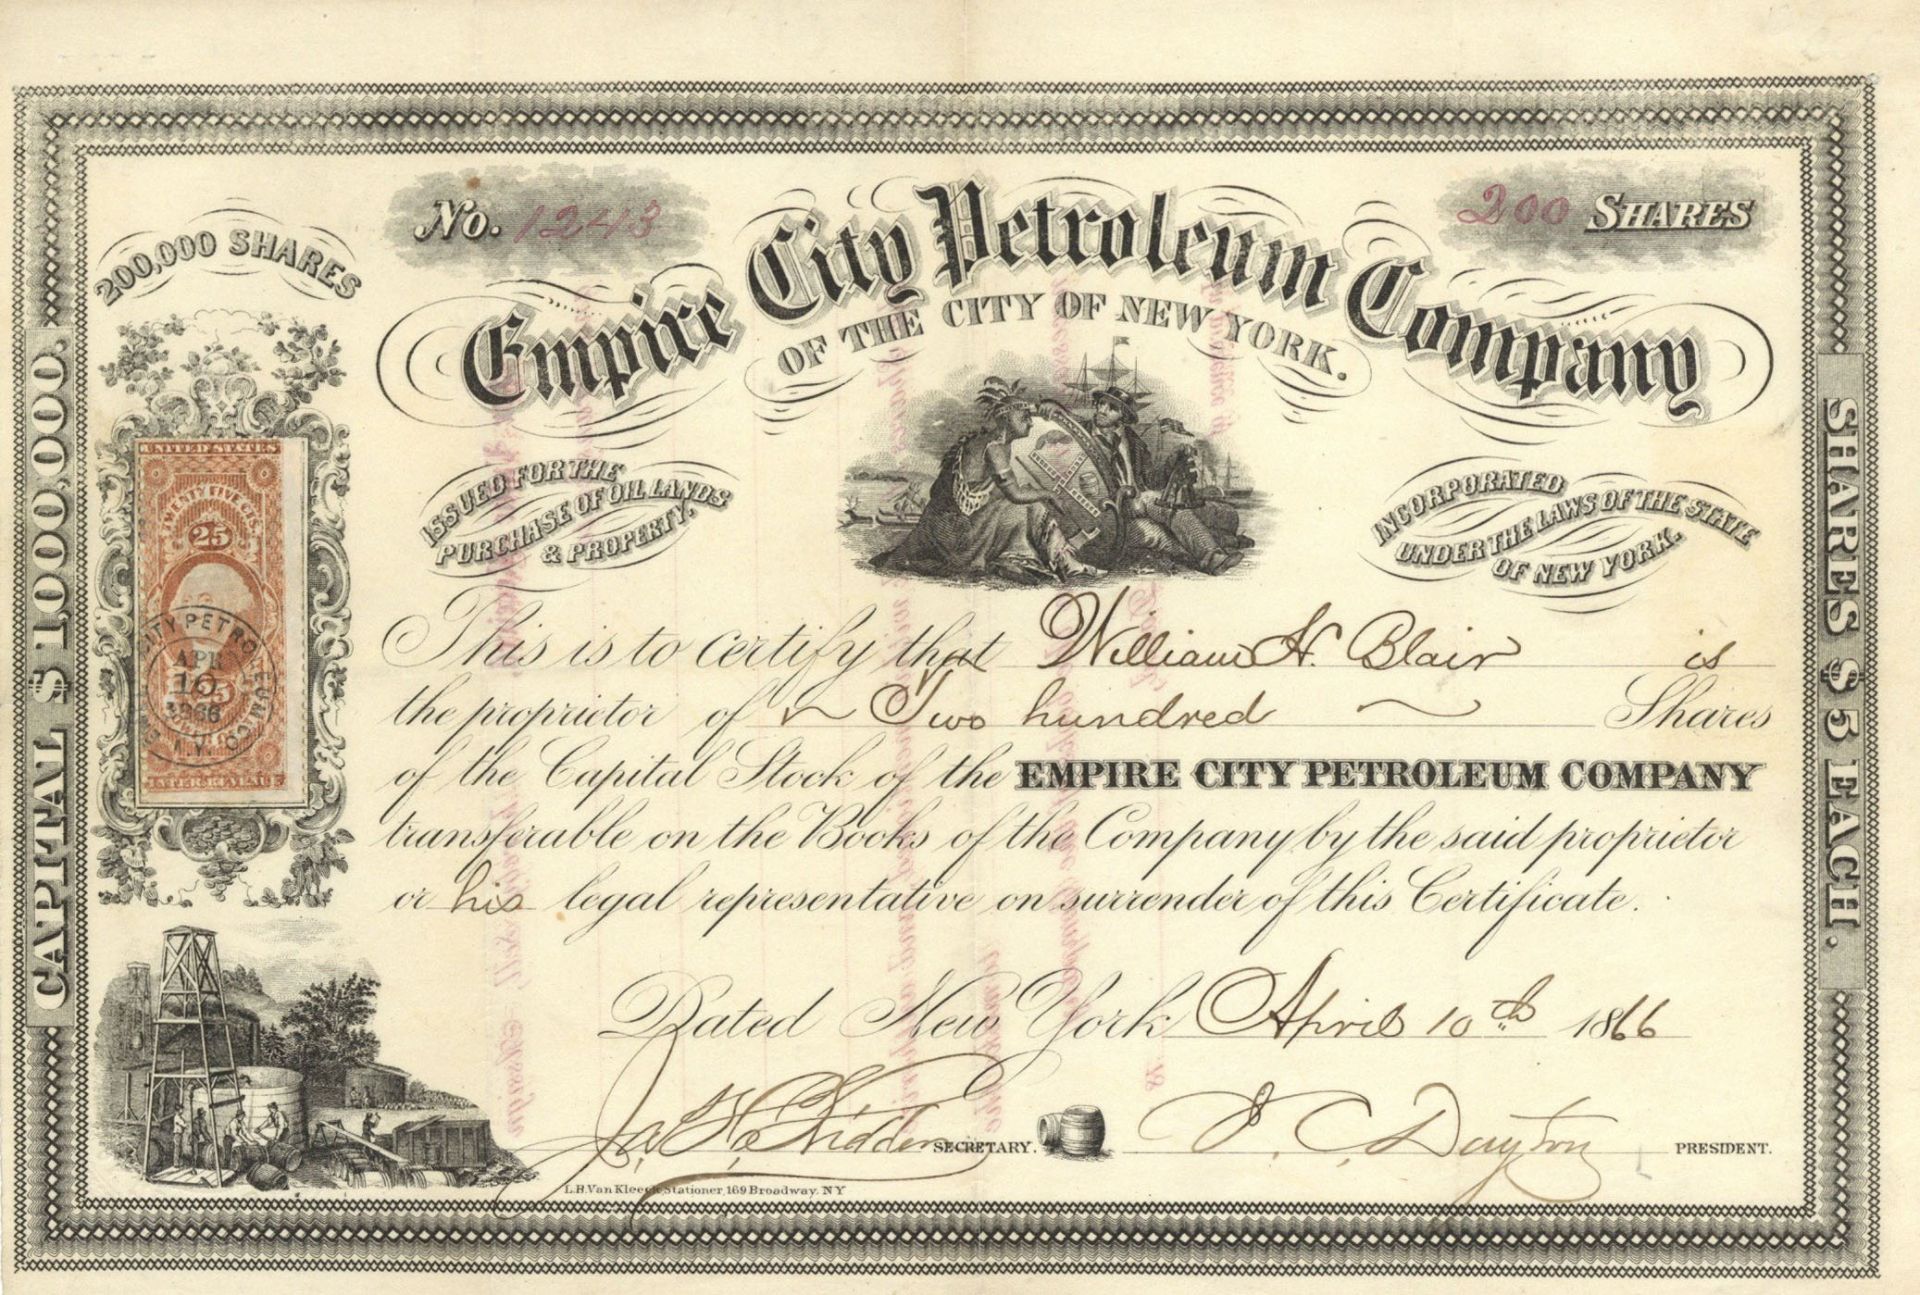 No. 1243
200 SHARES
200,000 SHARES
Empire City Petroleum Company
OF THE CITY OF NEW YORK.
ISSUED FOR THE
PURCHASE OF OIL LANDS
& PROPERTY.
INCORPORATED
UNDER THE LAWS OF THE STATE
OF NEW YORK.
CAPITAL $1,000,000.
SHARES $5 EACH.
UNITED STATES
TWENTY FIVE CTS.
25
CITY PETROLEUM CO.
N.Y.
APR
10
1866
INTER. REVENUE
This is to certify that William H. Blair is
the proprietor of Two hundred Shares
of the Capital Stock of the EMPIRE CITY PETROLEUM COMPANY
transferable on the Books of the Company by the said proprietor
or his legal representative on surrender of this Certificate.
Dated New York April 10th 1866
SECRETARY.
J. C. Dayton PRESIDENT.
L.H. Van Kleeck Stationer, 169 Broadway, NY